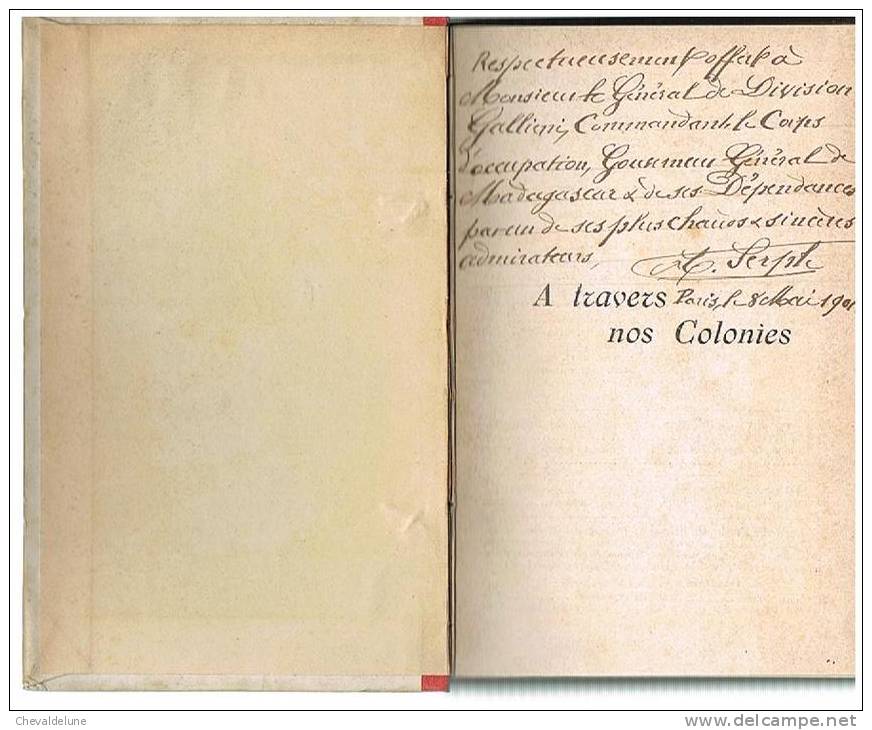 Respectueusement offert à
Monsieur le Général de Division
Gallieni, Commandant le Corps
d'occupation, Gouverneur Général de
Madagascar & de ses Dépendances
par un de ses plus chauds & sincères
admirateurs,
A travers
Paris, le 8 Mai 1901
nos Colonies
Chevaldelune
www.delcampe.net